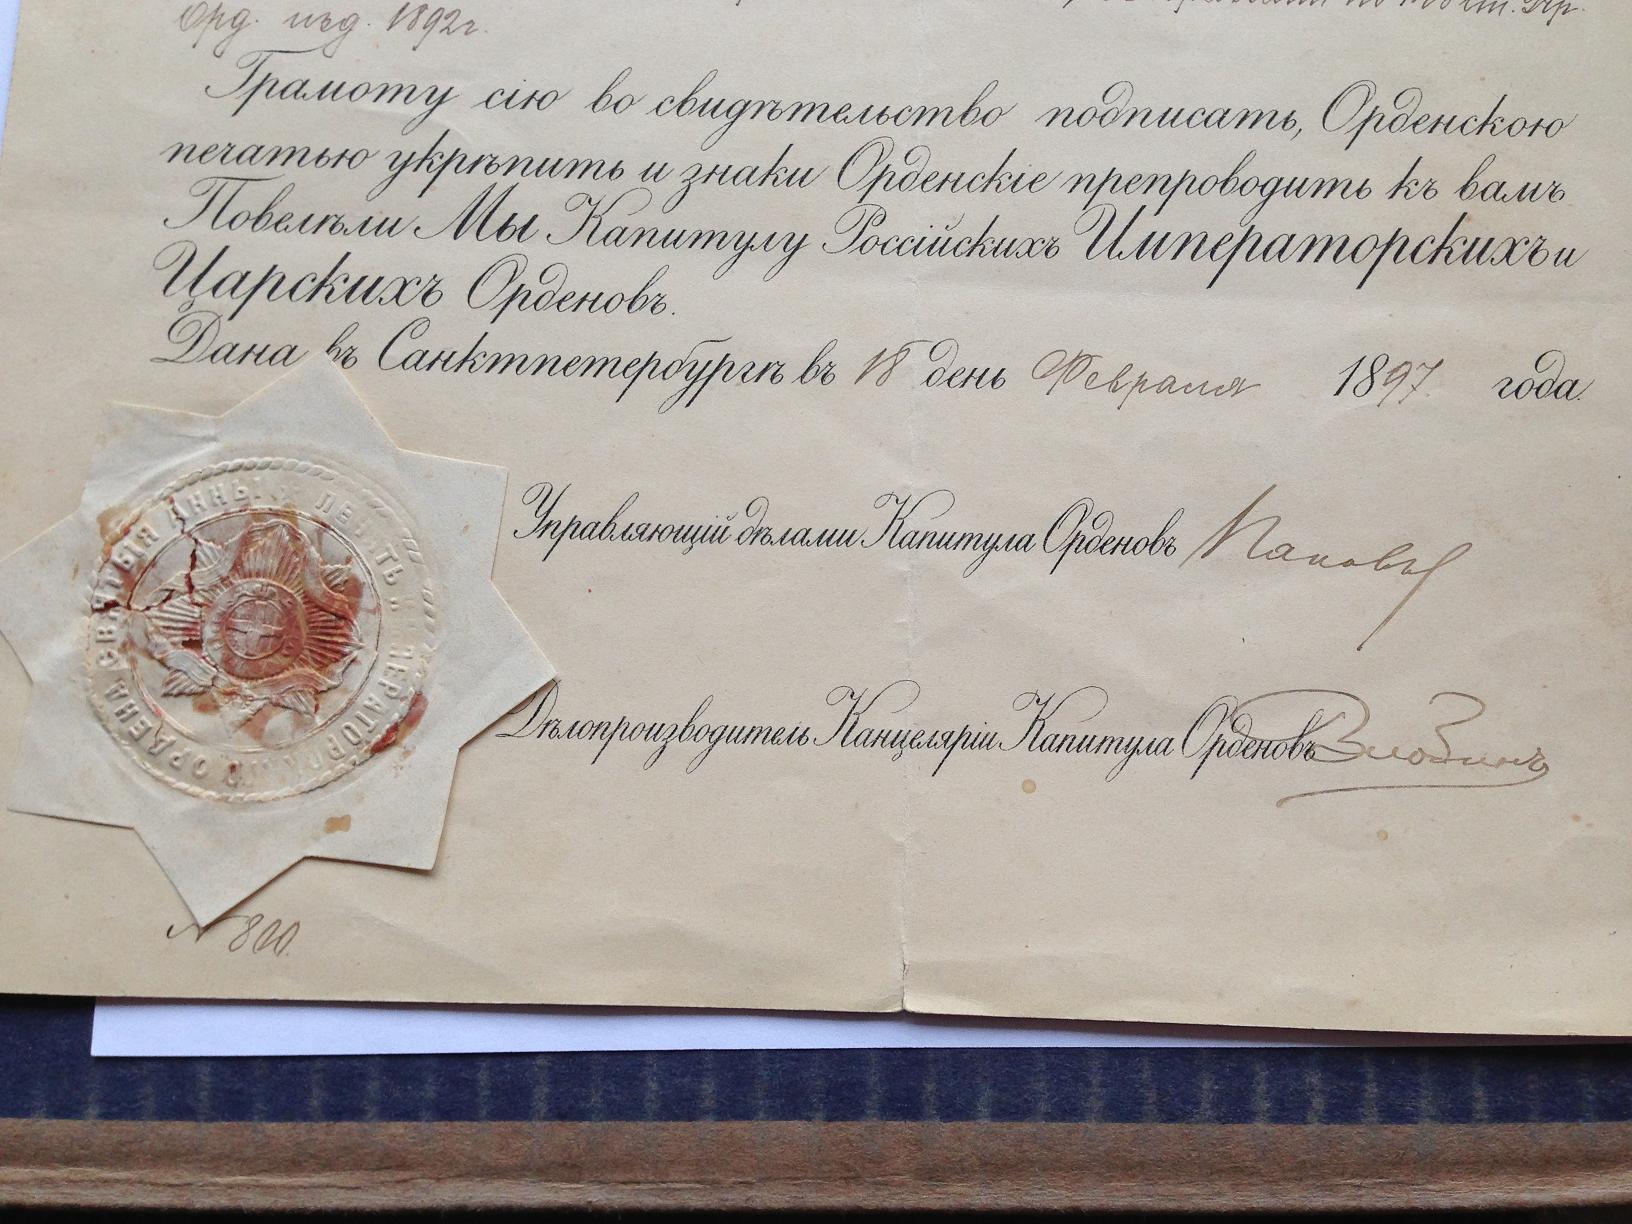 Орд. изд. 1892 г.
Грамоту сію во свидѣтельство подписать, Орденскою
печатью укрѣпить и знаки Орденскіе препроводить къ вамъ
Повелѣли Мы Капитулу Россійскихъ Императорскихъ и
Царскихъ Орденовъ.
Дана въ Санктпетербургѣ въ 18 день Февраля 1897 года.
ПЕЧАТЬ ИМПЕРАТОРСКАГО ОРДЕНА СВЯТЫЯ АННЫ
Управляющій дѣлами Капитула Орденовъ
Дѣлопроизводитель Канцеляріи Капитула Орденовъ
N 800.